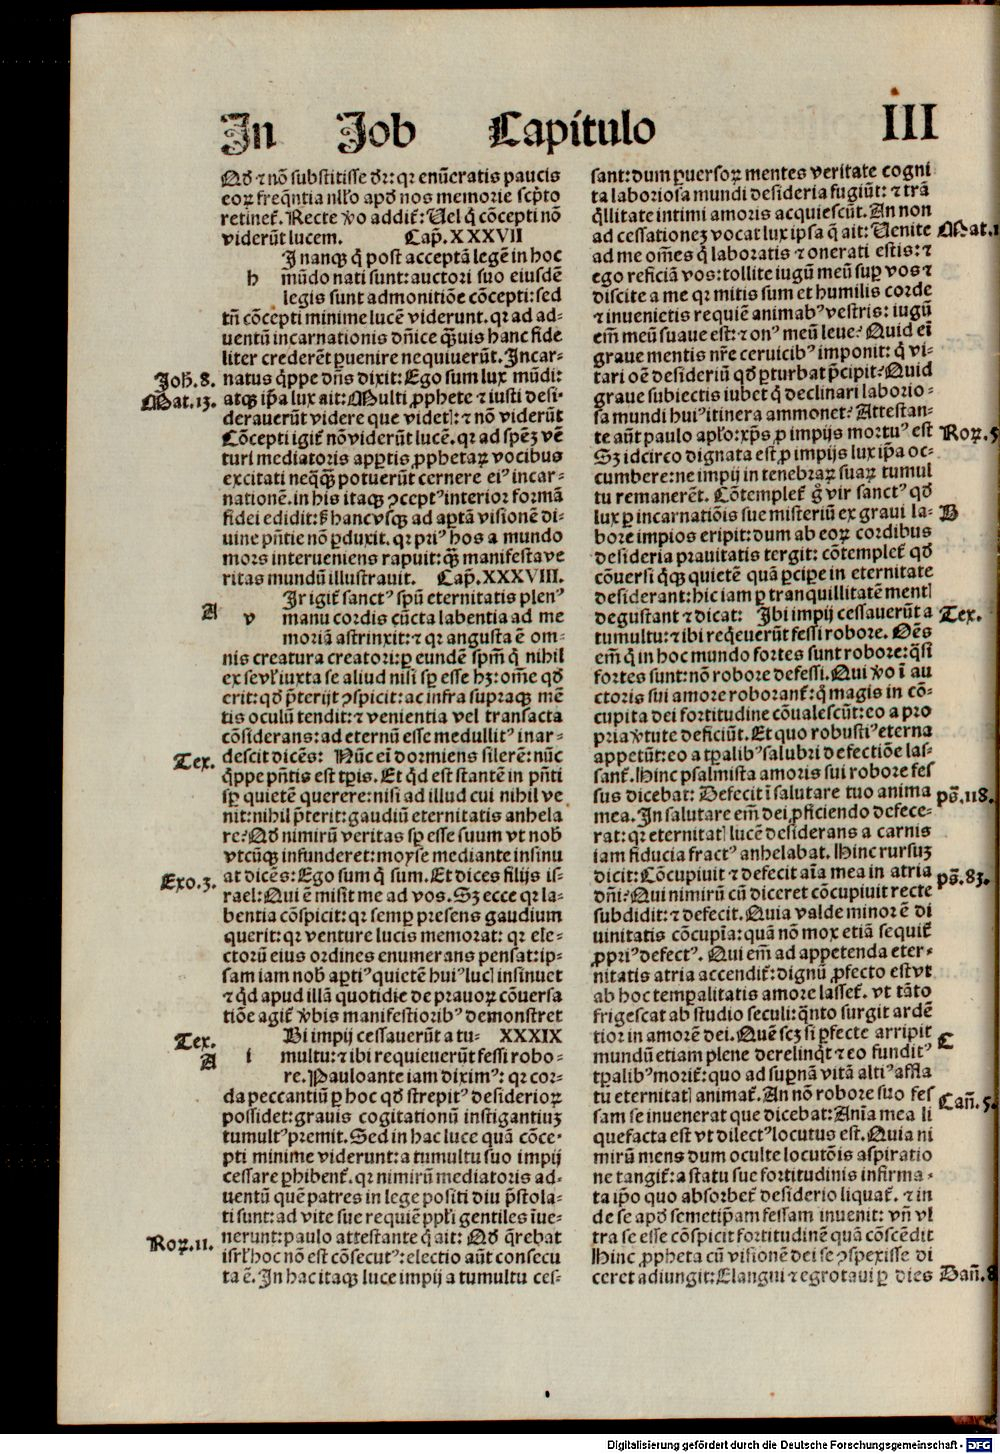 In Job Capitulo III
Qd̛ ⁊ nõ substitisse dr̃: qꝛ enũeratis paucis
eoꝝ freq̃ntia nllo apd̛ nos memorie scp̃to
retinet᷑. Recte v̾o addit᷑: Uel q̃ cõcepti nõ
viderũt lucem. Cap̃. XXXVII
Jnanqꝫ q̃ post acceptã legẽ in hoc
h mũdo nati sunt: auctori suo eiusdẽ
legis sunt admonitiõe cõcepti: sed
tñ cõcepti minime lucẽ viderunt. qꝛ ad ad⸗
uentũ incarnationis dñice q̃uis hanc fide
liter crederẽt ꝑuenire nequiuerũt. Incar⸗
Joh̃. 8. natus q̃ppe dñs dixit: Ego sum lux mũdi:
Mat. 13. atqꝫ ip̃a lux ait: Multi ꝓphete ⁊ iusti desi⸗
derauerũt videre que videtꝭ: ⁊ nõ viderũt
Cõcepti igit᷑ nõ viderũt lucẽ. qꝛ ad spẽꝫ vẽ
turi mediatoris apꝑtis ꝓphetaꝝ vocibus
excitati neq̃q̃ potuerũt cernere eiꝰ incar⸗
nationẽ. in his itaqꝫ ꝯceptꝰ interior formã
fidei edidit: sꝫ hanc vsqꝫ ad aꝑtã visionẽ di⸗
uine pñtie nõ ꝑduxit. qꝛ priꝰ hos a mundo
mors interueniens rapuit: q̃ manifesta ve
ritas mundũ illustrauit. Cap̃. XXXVIII.
Jr igit᷑ sanctꝰ spũ eternitatis plenꝰ
A v manu cordis cũcta labentia ad me
moriã astrinxit: ⁊ qꝛ angusta ẽ om⸗
nis creatura creatori: ꝑ eundẽ spm̃ q̃ nihil
ex se vl̛ iuxta se aliud nisi sꝑ esse hꝫ: om̃e qd̛
erit: qd̛ p̃terijt ꝯspicit: ac infra supraqꝫ mẽ
tis oculũ tendit: ⁊ venientia vel transacta
cõsiderans: ad eternũ esse medullitꝰ inar⸗
Tex. descit dicẽs: Nũc eĩ dormiens silerẽ: nũc
q̃ppe pñtis est tp̃is. Et q̃d est stantẽ in pñti
sꝑ quietẽ querere: nisi ad illud cui nihil ve
nit: nihil p̃terit: gaudiũ eternitatis anhela
re? Qd̛ nimirũ veritas sꝑ esse suum vt nob̛
vtcũqꝫ infunderet: moyse mediante insinu
Exo. 3. at dicẽs: Ego sum q̃ sum. Et dices filijs is⸗
rael: Qui ẽ misit me ad vos. Sꝫ ecce qꝛ la⸗
bentia cõspicit: qꝛ semꝑ presens gaudium
querit: qꝛ venture lucis memorat: qꝛ ele⸗
ctorũ eius ordines enumerans pensat: ip⸗
sam iam nob̛ aꝑtiꝰ quietẽ huiꝰ lucꝭ insinuet
⁊ q̃d apud illã quotidie de prauoꝝ cõuersa
tiõe agit᷑ v̾bis manifestioribꝰ demonstret
Tex. Bi impij cessauerũt a tu⸗ XXXIX
A i multu: ⁊ ibi requieuerũt fessi robo⸗
re. Paulo ante iam diximꝰ: qꝛ cor⸗
da peccantiũ ꝑ hoc qd̛ strepitꝰ desiderioꝝ
possidet: grauis cogitationũ instigantiuꝫ
tumultꝰ premit. Sed in hac luce quã cõce⸗
pti minime viderunt: a tumultu suo impij
cessare ꝑhibent᷑. qꝛ nimirũ mediatoris ad⸗
uentũ quẽ patres in lege positi diu p̃stola⸗
ti sunt: ad vite sue requiẽ ppl̃i gentiles ĩue⸗
Roꝝ. 11. nerunt: paulo attestante q̃ ait: Qd̛ q̃rebat
isrl̛ hoc nõ est cõsecutꝰ: electio aũt consecu
ta ẽ. In hac itaqꝫ luce impij a tumultu ces⸗
sant: dum ꝑuersoꝝ mentes veritate cogni
ta laboriosa mundi desideria fugiũt: ⁊ trã
q̃llitate intimi amoris acquiescũt. An non
ad cessationeꝫ vocat lux ipsa q̃ ait: Uenite Mat. 1
ad me om̃es q̃ laboratis ⁊ onerati estis: ⁊
ego reficiã vos: tollite iugũ meũ suꝑ vos ⁊
discite a me qꝛ mitis sum et humilis corde
⁊ inuenietis requiẽ animabꝰ vestris: iugũ
em̃ meũ suaue est: ⁊ onꝰ meũ leue? Quid eĩ
graue mentis nr̃e ceruicibꝰ imponit: q̃ vi⸗
tari oẽ desideriũ qd̛ ꝑturbat p̃cipit? Quid
graue subiectis iubet q̃ declinari laborio⸗
sa mundi huiꝰ itinera ammonet? Attestan⸗
te aũt paulo apl̛o: xp̃s ꝓ impijs mortuꝰ est Roꝝ. 5
Sꝫ idcirco dignata est ꝓ impijs lux ip̃a oc⸗
cumbere: ne impij in tenebraꝝ suaꝝ tumul
tu remanerẽt. Cõtemplet᷑ g̃ vir sanctꝰ qd̛
lux ꝑ incarnatiõis sue misteriũ ex graui la⸗ B
bore impios eripit: dum ab eoꝝ cordibus
desideria prauitatis tergit: cõtemplet᷑ qd̛
cõuersi q̃qꝫ quietẽ quã ꝑcipe in eternitate
desiderant: hic iam ꝑ tranquillitatẽ mentꝭ
degustant ⁊ dicat: Ibi impij cessauerũt a Tex.
tumultu: ⁊ ibi reqeuerũt fessi robore. Oẽs
em̃ q̃ in hoc mundo fortes sunt robore: q̃si
fortes sunt: nõ robore defessi. Qui v̾o ĩ au
ctoris sui amore roborant᷑: q̃ magis in cõ⸗
cupita dei fortitudine cõualescũt: eo a pro
pria v̾tute deficiũt. Et quo robustiꝰ eterna
appetũt: eo a tꝑalibꝰ salubri defectiõe las⸗
sant᷑. Hinc psalmista amoris sui robore fes
sus dicebat: Defecit ĩ salutare tuo anima ps̃. 118.
mea. In salutare em̃ dei ꝓficiendo defece⸗
rat: qꝛ eternitatꝭ lucẽ desiderans a carnis
iam fiducia fractꝰ anhelabat. Hinc rursuꝫ
dicit: Cõcupiuit ⁊ defecit aĩa mea in atria ps̃. 83.
dñi? Qui nimirũ cũ diceret cõcupiuit recte
subdidit: ⁊ defecit. Quia valde minor ẽ di
uinitatis cõcupĩa: quã nõ mox etiã sequit᷑
ꝓpriꝰ defectꝰ. Qui em̃ ad appetenda eter⸗
nitatis atria accendit᷑: dignũ ꝓfecto est vt
ab hoc temꝑalitatis amore lasset᷑. vt tãto
frigescat ab studio seculi: q̃nto surgit ardẽ
tior in amorẽ dei. Quẽ scꝫ si ꝑfecte arripit C
mundũ etiam plene derelinq̃t ⁊ eo funditꝰ
tꝑalibꝰ morit᷑: quo ad suꝑnã vitã altiꝰ affla
tu eternitatꝭ animat᷑. An nõ robore suo fes Cañ. 5.
sam se inuenerat que dicebat: Anĩa mea li
quefacta est vt dilectꝰ locutus est. Quia ni
mirũ mens dum occulte locutõis aspiratio
ne tangit᷑: a statu sue fortitudinis infirma⸗
ta ip̃o quo absorbet᷑ desiderio liquat᷑. ⁊ in
de se apd̛ semetip̃am fessam inuenit: vñ vl
tra se esse cõspicit fortitudinẽ quã cõscẽdit
Hinc ꝓpheta cũ visionẽ dei se ꝯspexisse di
ceret adiungit: Elangui ⁊ egrotaui ꝑ dies Dañ. 8
Digitalisierung gefördert durch die Deutsche Forschungsgemeinschaft - DFG